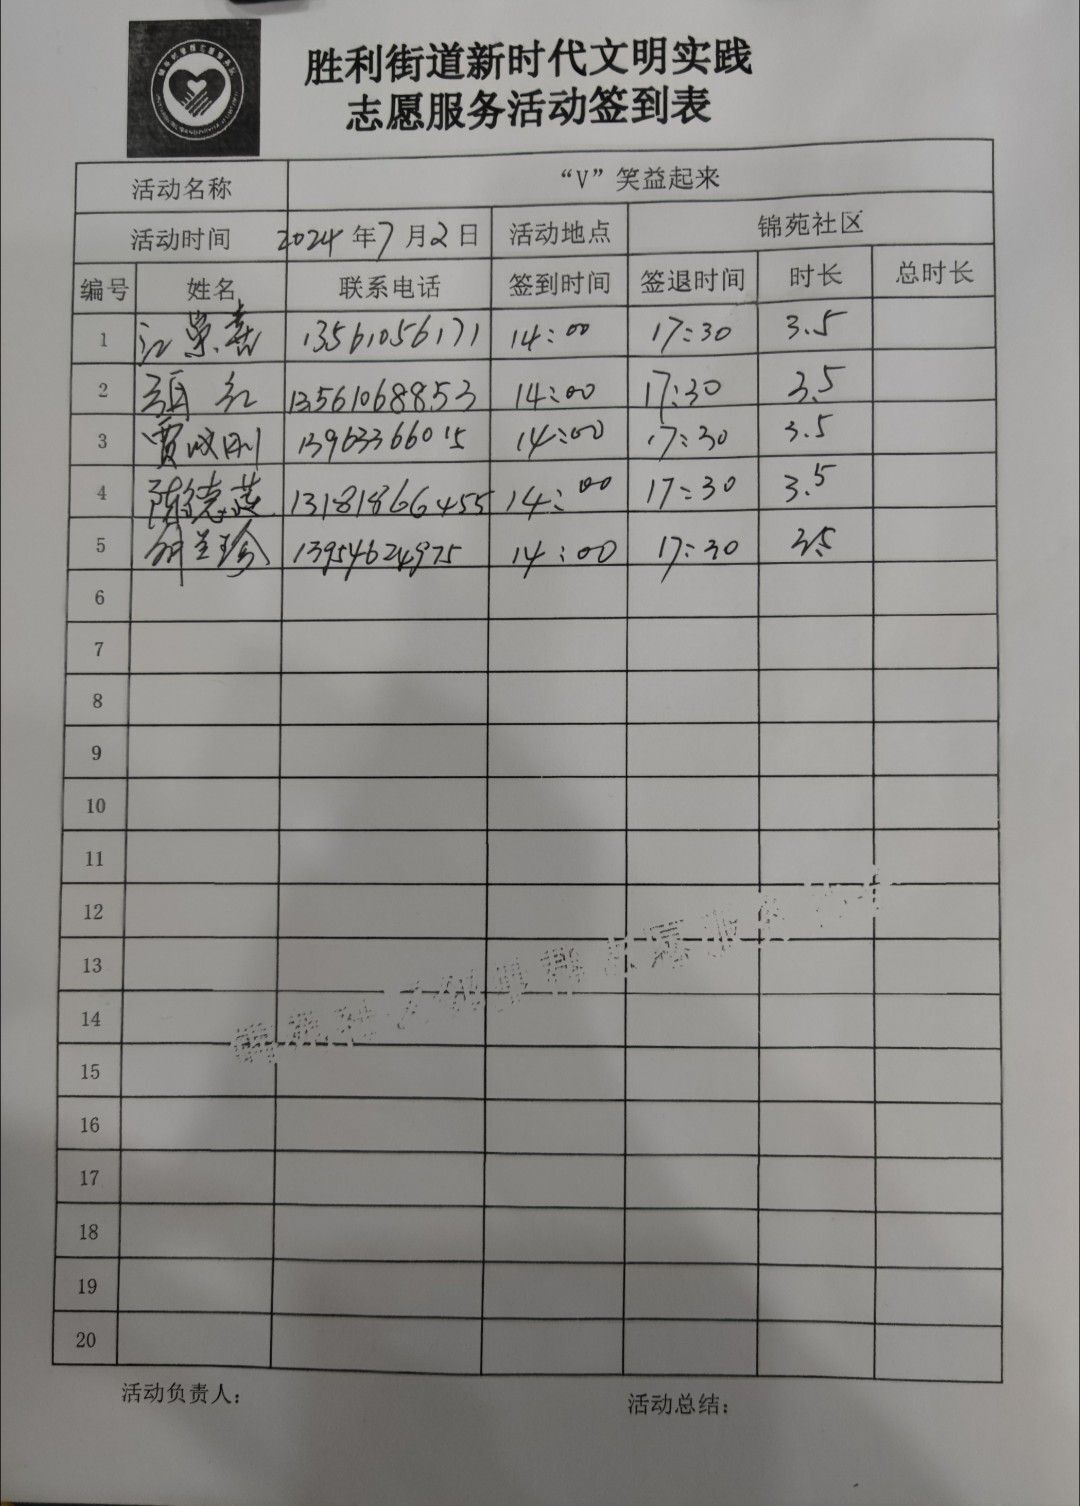 胜利街道新时代文明实践
志愿服务活动签到表
活动名称 “V”笑益起来
活动时间 2024年7月2日 活动地点 锦苑社区
编号 姓名 联系电话 签到时间 签退时间 时长 总时长
1 13561056171 14:00 17:30 3.5
2 红 13561068853 14:00 17:30 3.5
3 贾 刚 13963366015 14:00 17:30 3.5
4 陈德燕 13181866455 14:00 17:30 3.5
5 兰珍 13954624975 14:00 17:30 3.5
6
7
8
9
10
11
12
13
14
15
16
17
18
19
20
活动负责人: 活动总结: